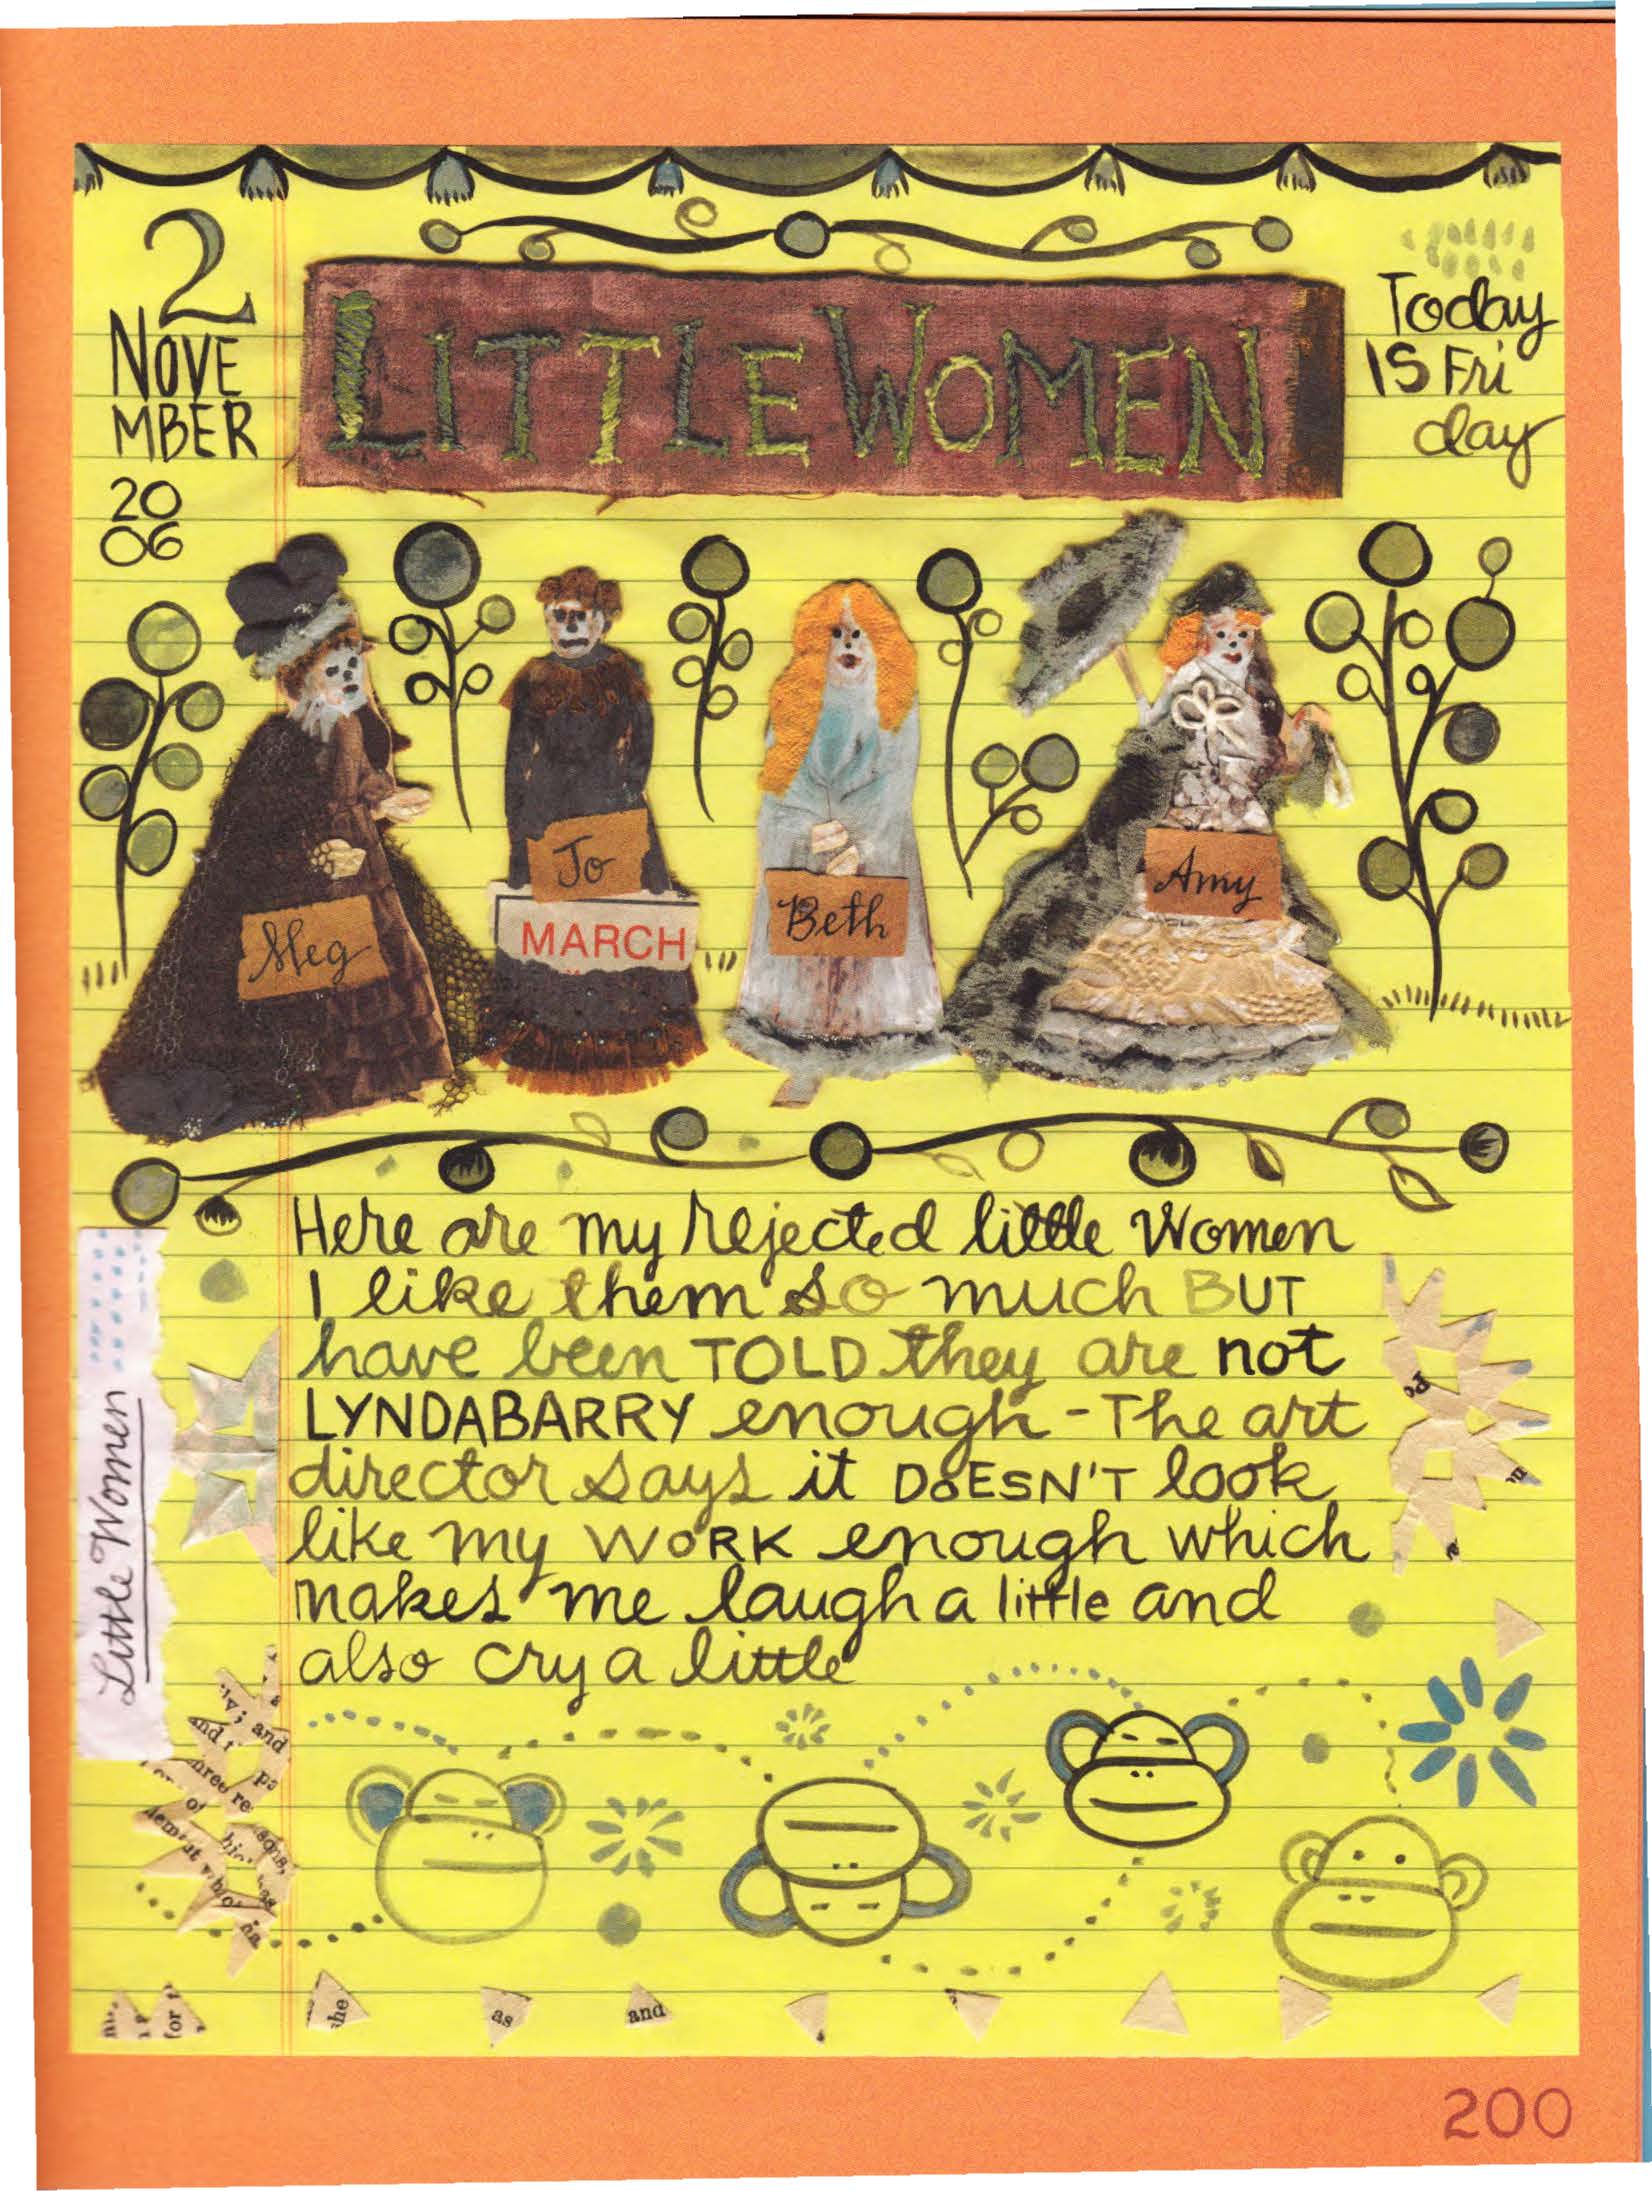 2
NOVE
MBER
20
06
LITTLE WOMEN
Today
IS Fri
day
Meg
Jo
MARCH
Beth
Amy
Here are my rejected little Women
I like them so much BUT
have been TOLD they are not
LYNDABARRY enough - The art
director says it DOESN'T look
like my WORK enough which
makes me laugh a little and
also cry a little
Little Women
Po
and
and
of
for
she
as
and
200